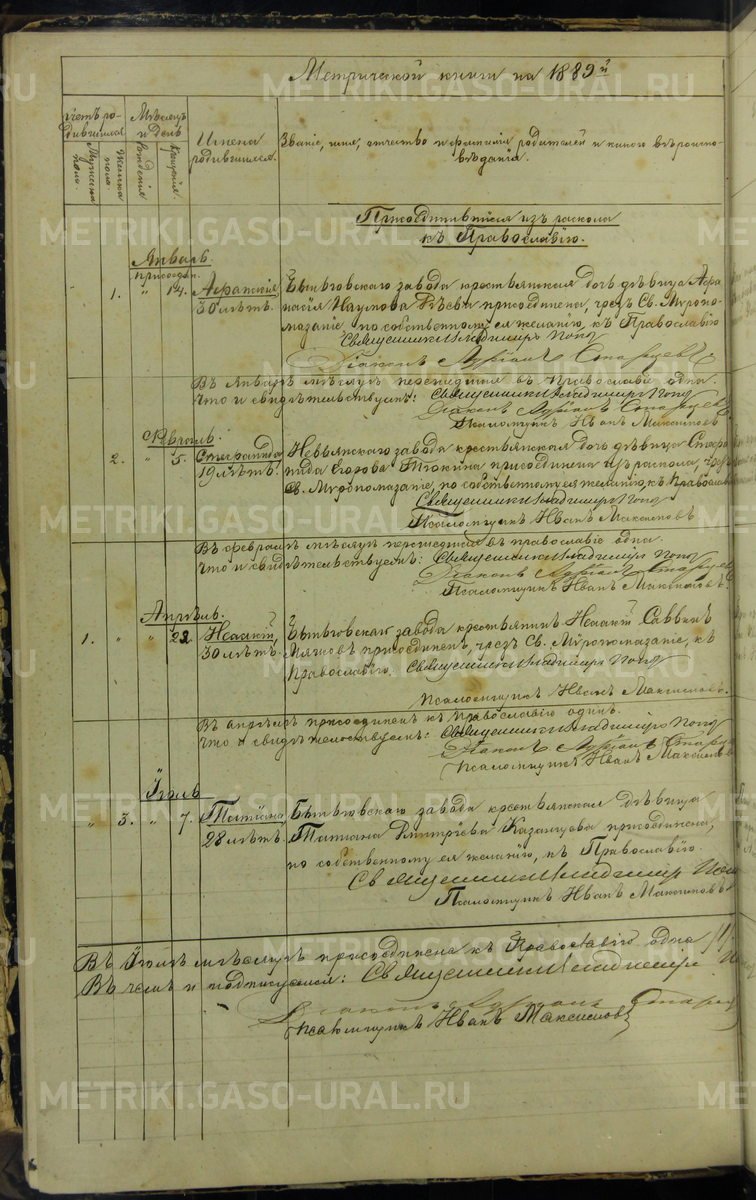 Метрической книги на 1889й
Счетъ родившихся
Мужска пола.
Женска пола.
Мѣсяцъ и день
рожденія
крещенія.
Имена родившихся.
Званіе, имя, отчество и фамилія родителей и какого вѣроисповѣданія.
Присоединившіеся изъ раскола
къ Православію.
Январь.
присоедин.
1. " 14. Афанасія Бытьевскаго завода крестьянская дочь дѣвица Афа
30 лѣтъ. насія Наумова присоединена, чрезъ Св. Мѵропо-
мазаніе, по собственному ея желанію, къ Православію
Священникъ Владимиръ Поповъ
Діаконъ Адріанъ Старцевъ
Въ Январѣ мѣсяцѣ перешедшая въ Православіе одна.
Что и свидѣтельствуемъ: Священникъ Владимиръ Поповъ
Діаконъ Адріанъ Старцевъ
Псаломщикъ Иванъ Максимовъ
Февраль.
2. " 5. Стефанида Невьянскаго завода крестьянская дочь дѣвица Стефа
19 лѣтъ. нида Егорова присоединена изъ раскола, чрезъ
Св. Мѵропомазаніе, по собственному ея желанію, къ Православію
Священникъ Владимиръ Поповъ
Псаломщикъ Иванъ Максимовъ
Въ февралѣ мѣсяцѣ перешедшая въ православіе одна.
Что и свидѣтельствуемъ: Священникъ Владимиръ Поповъ
Діаконъ Адріанъ Старцевъ
Псаломщикъ Иванъ Максимовъ
Апрѣль.
1. " " 23. Исаакій Бытьевскаго завода крестьянинъ Исаакій Саввинъ
30 лѣтъ. присоединенъ, чрезъ Св. Мѵропомазаніе, къ
Православію. Священникъ Владимиръ Поповъ
Псаломщикъ Иванъ Максимовъ.
Въ апрѣлѣ присоединенъ къ Православію одинъ.
Что и свидѣтельствуемъ: Священникъ Владимиръ Поповъ
Діаконъ Адріанъ Старцевъ
Псаломщикъ Иванъ Максимовъ
Іюль
" 3. " 7. Татіана Бытьевскаго завода крестьянская дѣвица
28 лѣтъ. Татіана Димитріева Казанцова присоединена,
по собственному ея желанію, къ Православію.
Священникъ Владимиръ Поповъ
Псаломщикъ Иванъ Максимовъ
Въ Іюлѣ мѣсяцѣ присоединена къ Православію одна
Въ чемъ и подписуемся: Священникъ Владимиръ
Діаконъ Адріанъ Старцевъ
Псаломщикъ Иванъ Максимовъ
METRIKI.GASO-URAL.RU